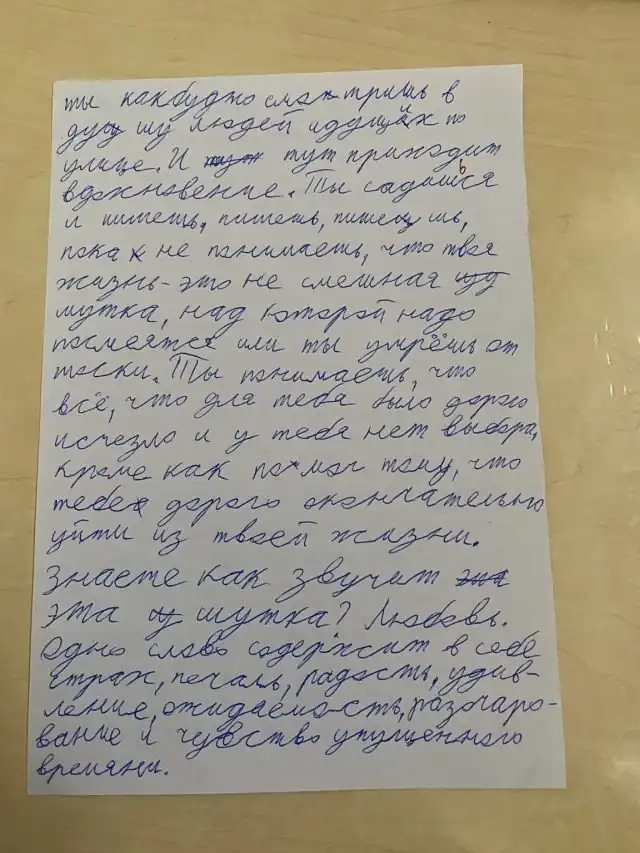 ты какбудто смотришь в
душу людей идущих по
улице. И тут приходит
вдохновение. Ты садишься
и пишешь, пишешь, пишешь,
пока не понимаешь, что твоя
жизнь - это не смешная
шутка, над которой надо
посмеятся или ты умрёшь от
тоски. Ты понимаешь, что
всё, что для тебя было дорого
исчезло и у тебя нет выбора,
кроме как помоч тому, что
тебе дорого окончательно
уйти из твоей жизни.
Знаете как звучит
эта шутка? Любовь.
Одно слово содержит в себе
страх, печаль, радость, удив-
ление, ожидаемость, разочаро-
вание и чувство упущенного
времяни.